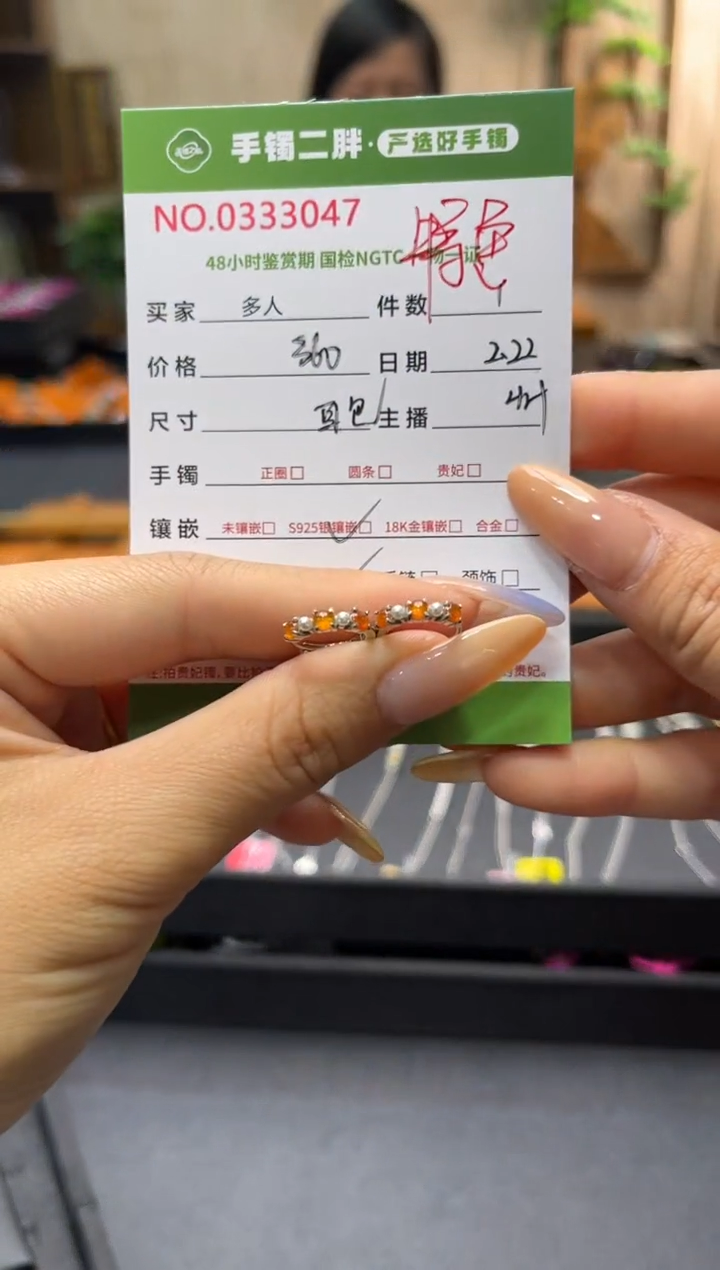 手镯二胖·严选好手镯
NO.0333047
48小时鉴赏期 国检NGTC 一物一证
买家 多人 件数 1
价格 360 日期 2.22
尺寸 耳包 主播
手镯 正圈□ 圆条□ 贵妃□
镶嵌 未镶嵌□ S925银镶嵌□ 18K金镶嵌□ 合金□
手链□ 颈饰□
注:拍贵妃镯,要比 贵妃。